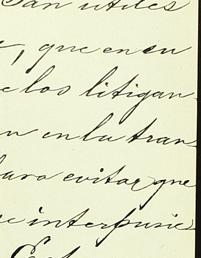 san utiles
, que en cu
e los litigan
n en la tran
para evitar que
e interpusie